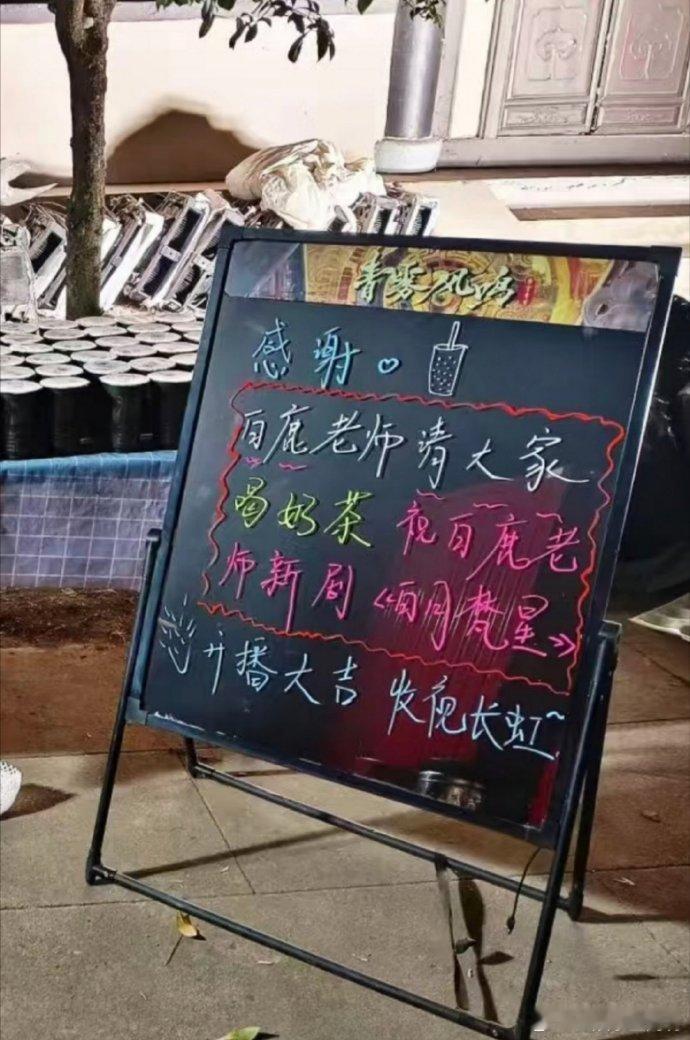 青雾风鸣
感谢♡
白鹿老师请大家
喝奶茶 祝白鹿老
师新剧《白月梵星》
开播大吉 收视长虹~